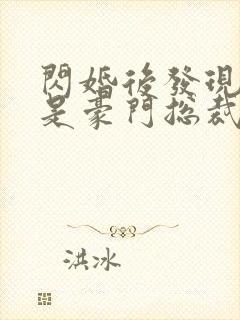 閃婚後發現
是豪門總裁
洪冰